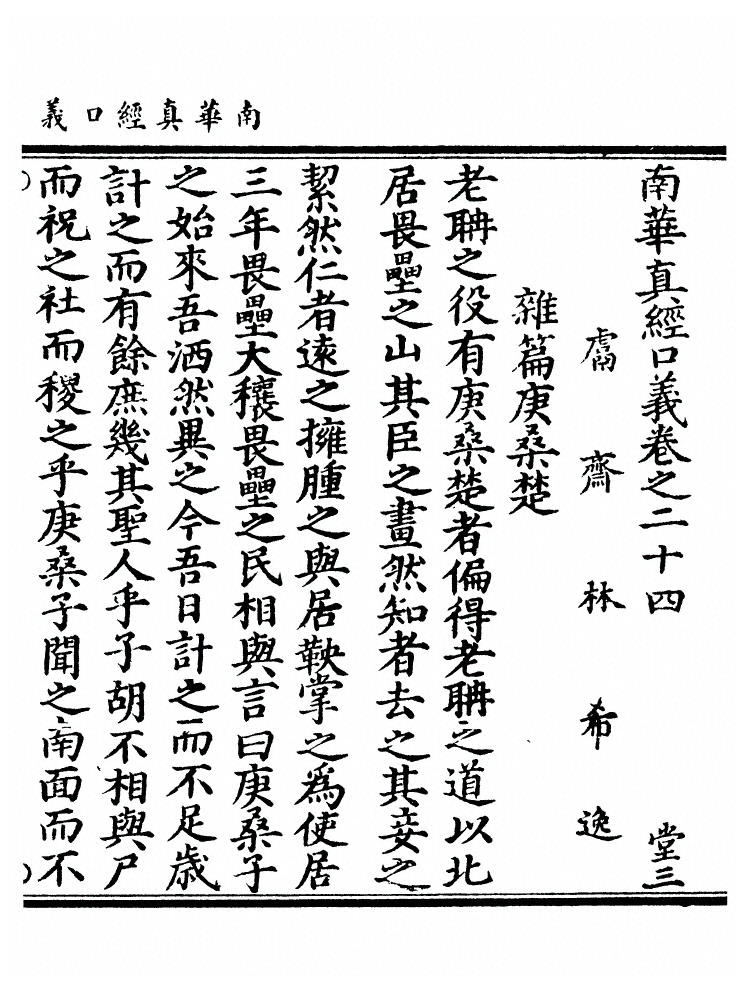 南華真經口義
南華真經口義卷之二十四 堂三
鬳齋林希逸
雜篇庚桑楚
老聃之役有庚桑楚者偏得老聃之道以北
居畏壘之山其臣之畫然知者去之其妾之
絜然仁者遠之擁腫之與居鞅掌之爲使居
三年畏壘大穰畏壘之民相與言曰庚桑子
之始來吾洒然異之今吾日計之而不足歲
計之而有餘庶幾其聖人乎子胡不相與尸
而祝之社而稷之乎庚桑子聞之南面而不